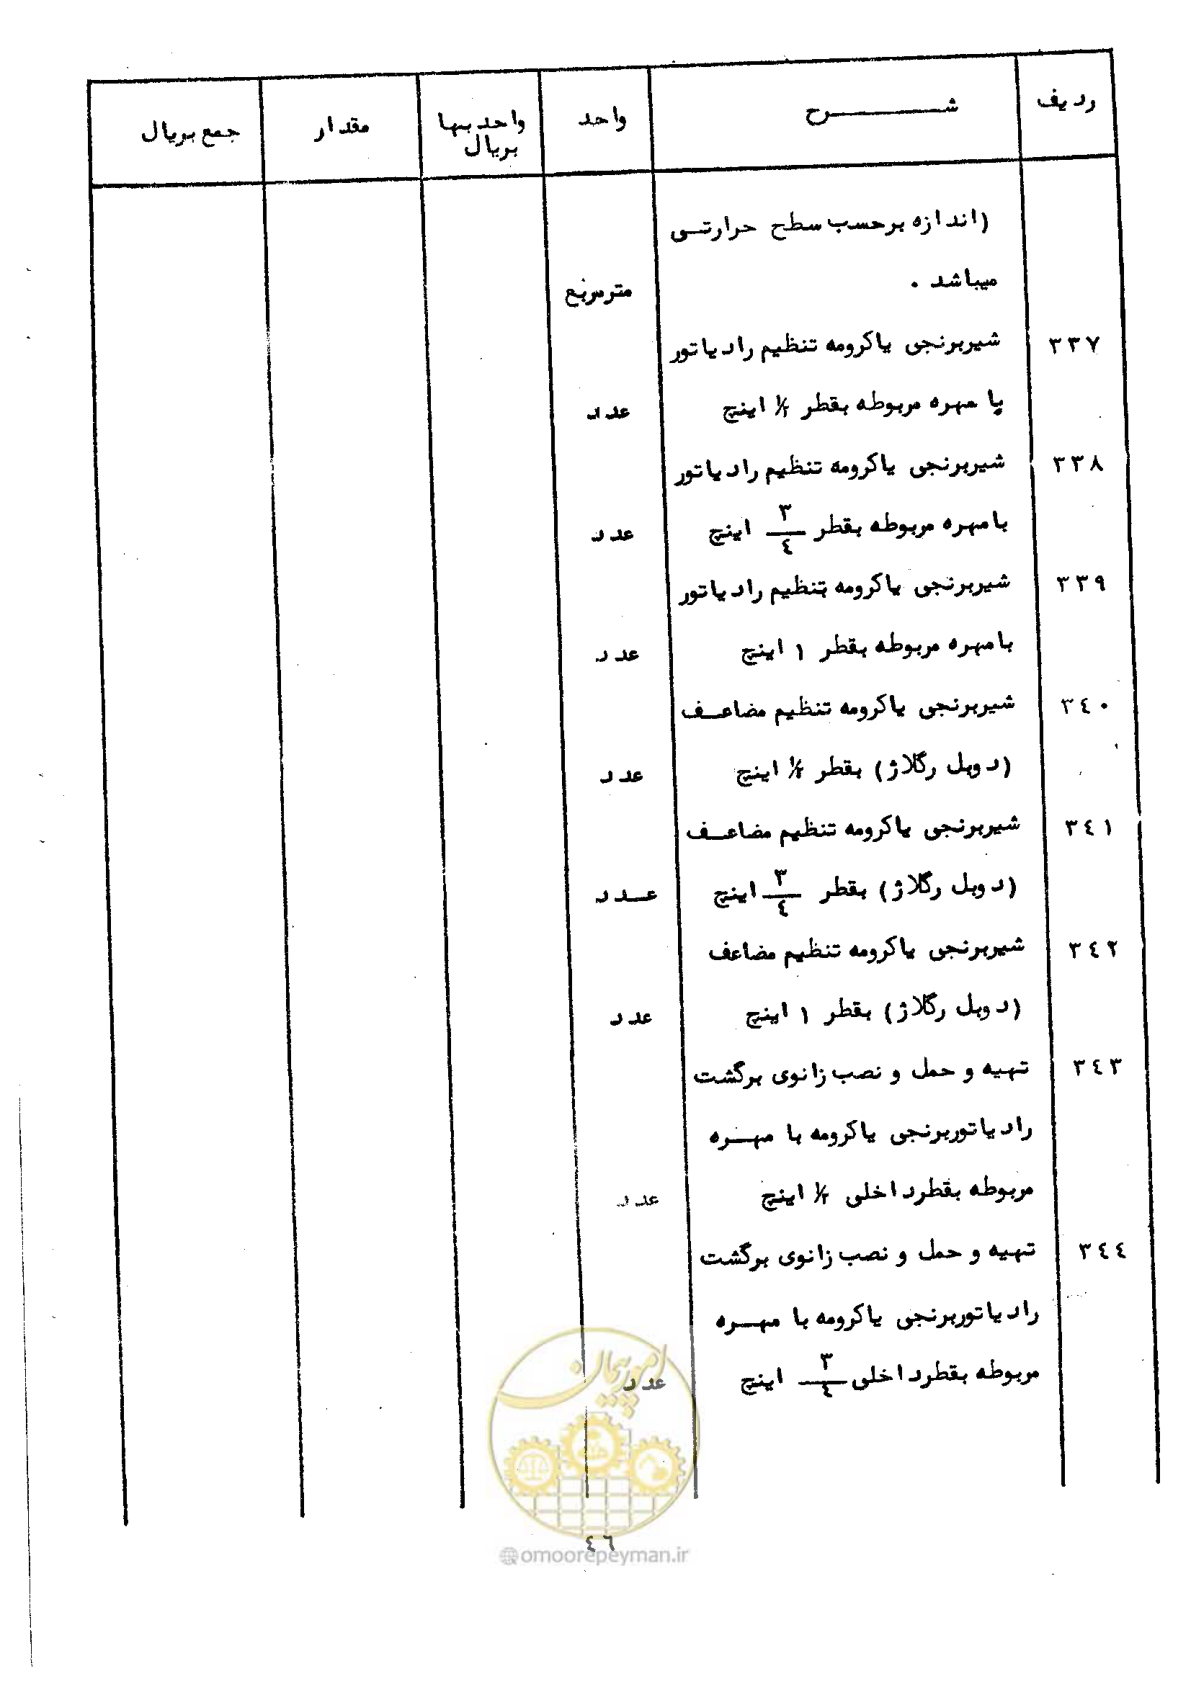 ردیف شرح واحد واحد بها بریال مقدار جمع بریال
(اندازه برحسب سطح حرارتی
میباشد . مترمربع
۳۳۷ شیربرنجی یاکرومه تنظیم رادیاتور
با مهره مربوطه بقطر ½ اینچ عدد
۳۳۸ شیربرنجی یاکرومه تنظیم رادیاتور
بامهره مربوطه بقطر ۳/٤ اینچ عدد
۳۳۹ شیربرنجی یاکرومه تنظیم رادیاتور
بامهره مربوطه بقطر ۱ اینچ عدد
۳٤۰ شیربرنجی یاکرومه تنظیم مضاعف
(دوبل رگلاژ) بقطر ½ اینچ عدد
۳٤۱ شیربرنجی یاکرومه تنظیم مضاعف
(دوبل رگلاژ) بقطر ۳/٤ اینچ عدد
۳٤۲ شیربرنجی یاکرومه تنظیم مضاعف
(دوبل رگلاژ) بقطر ۱ اینچ عدد
۳٤۳ تهیه و حمل و نصب زانوی برگشت
رادیاتوربرنجی یاکرومه با مهره
مربوطه بقطرداخلی ½ اینچ عدد
۳٤٤ تهیه و حمل و نصب زانوی برگشت
رادیاتوربرنجی یاکرومه با مهره
مربوطه بقطرداخلی ۳/٤ اینچ عدد
امور پیمان
٤٦
@omoorepeyman.ir